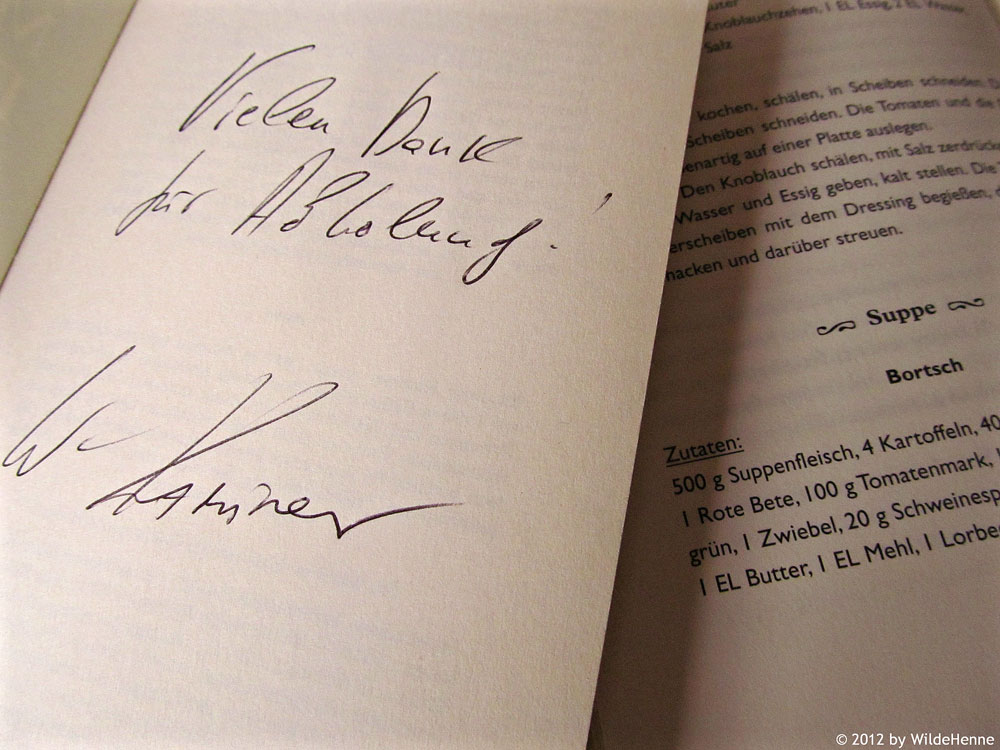 Vielen Dank
für Abholung!
W. Kaminer
Knoblauchzehen, 1 EL Essig, 2 EL Wasser,
Salz
kochen, schälen, in Scheiben schneiden.
Scheiben schneiden. Die Tomaten und die
enartig auf einer Platte auslegen.
Den Knoblauch schälen, mit Salz zerdrücke
Wasser und Essig geben, kalt stellen. Die
erscheiben mit dem Dressing begießen,
hacken und darüber streuen.
Suppe
Bortsch
Zutaten:
500 g Suppenfleisch, 4 Kartoffeln, 40
1 Rote Bete, 100 g Tomatenmark,
grün, 1 Zwiebel, 20 g Schweinesp
1 EL Butter, 1 EL Mehl, 1 Lorbe
© 2012 by WildeHenne